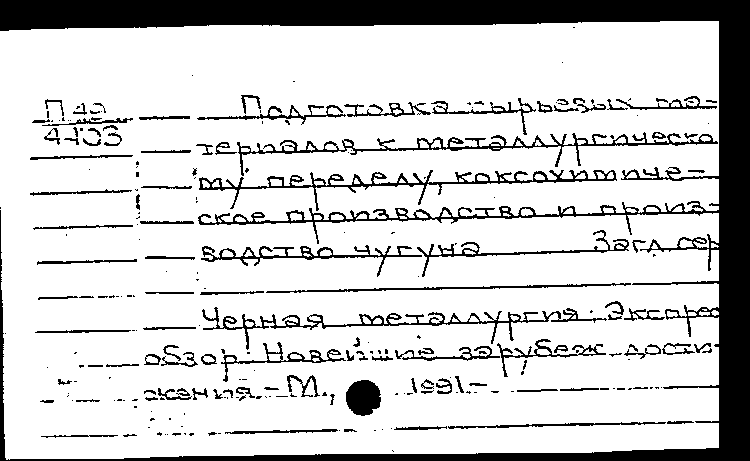 П 49
4403
Подготовка сырьевых ма-
териалов к металлургическо
му переделу, коксохимиче-
ское производство и произ-
водство чугуна Загл сер
Черная металлургия: Экспрес
обзор: Новейшие зарубеж дости-
жения. - М., 1991-